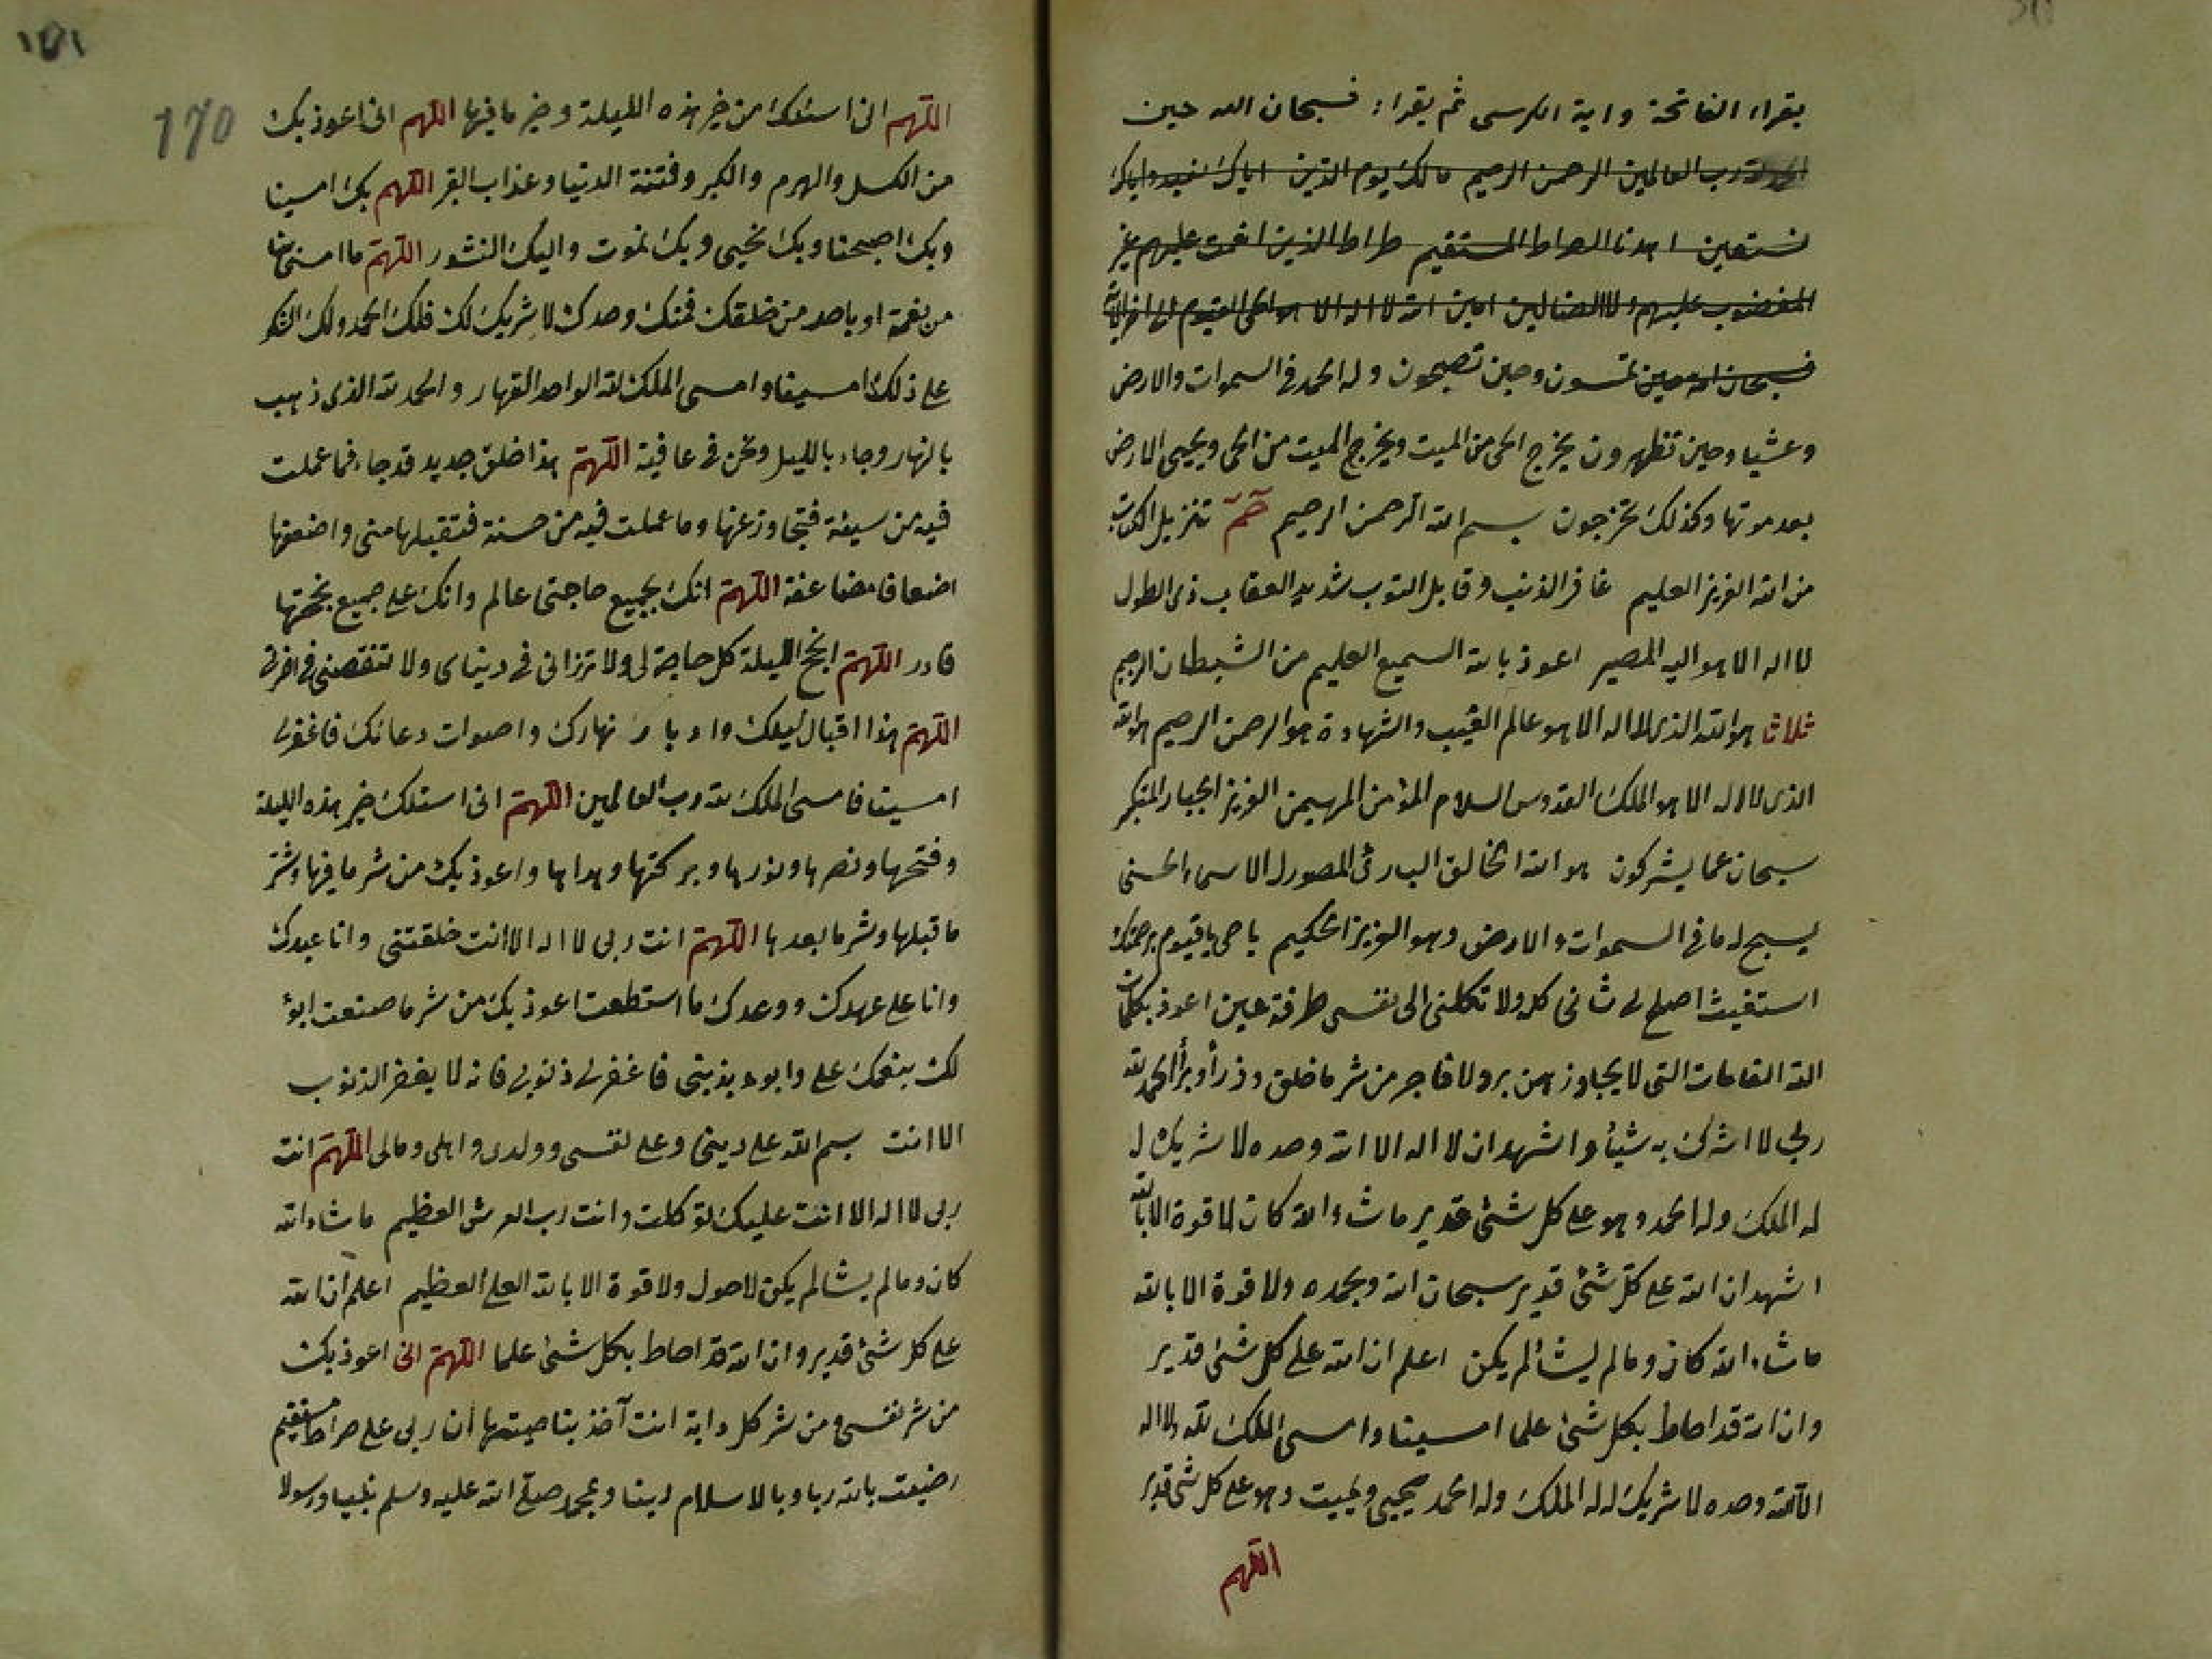 يقراء الفاتحة واية الكرسى ثم يقراء فسبحان الله حين
الحمد لله رب العالمين الرحمن الرحيم مالك يوم الدين اياك نعبد واياك
نستعين اهدنا الصراط المستقيم صراط الذين انعمت عليهم غير
المغضوب عليهم ولا الضالين امين الله لا اله الا هو الحى القيوم الى اخر الاية
فسبحان الله حين تمسون وحين تصبحون وله الحمد فى السموات والارض
وعشيا وحين تظهرون يخرج الحى من الميت ويخرج الميت من الحى ويحيى الارض
بعد موتها وكذلك تخرجون بسم الله الرحمن الرحيم حم تنزيل الكتاب
من الله العزيز العليم غافر الذنب وقابل التوب شديد العقاب ذى الطول
لا اله الا هو اليه المصير اعوذ بالله السميع العليم من الشيطان الرجيم
ثلاثا هو الله الذى لا اله الا هو عالم الغيب والشهادة هو الرحمن الرحيم هو الله
الذى لا اله الا هو الملك القدوس السلام المؤمن المهيمن العزيز الجبار المتكبر
سبحان عما يشركون هو الله الخالق البارئ المصور له الاسماء الحسنى
يسبح له ما فى السموات والارض وهو العزيز الحكيم يا حى يا قيوم برحمتك
استغيث اصلح لى شانى كله ولا تكلنى الى نفسى طرفة عين اعوذ بكلمات
الله التامات التى لا يجاوزهن بر ولا فاجر من شر ما خلق وذرأ وبرأ الحمد لله
ربى لا اشرك به شيأ واشهد ان لا اله الا الله وحده لا شريك له
له الملك وله الحمد وهو على كل شئ قدير ما شاء الله كان لا قوة الا بالله
اشهد ان الله على كل شئ قدير سبحان الله وبحمده ولا قوة الا بالله
ما شاء الله كان وما لم يشأ لم يكن اعلم ان الله على كل شئ قدير
وان الله قد احاط بكل شئ علما امسينا وامسى الملك لله ولا اله
الا الله وحده لا شريك له له الملك وله الحمد يحيى ويميت وهو على كل شئ قدير
اللهم
١٥١
170
اللهم انى اسئلك من خير هذه الليلة وخير ما فيها اللهم انى اعوذ بك
من الكسل والهرم والكبر وفتنة الدنيا وعذاب القبر اللهم بك امسينا
وبك اصبحنا وبك نحيى وبك نموت واليك النشور اللهم ما امسى بنا
من نعمة او باحد من خلقك فمنك وحدك لا شريك لك فلك الحمد ولك الشكر
على ذلك امسينا وامسى الملك لله الواحد القهار والحمد لله الذى ذهب
بالنهار وجاء بالليل ونحن فى عافية اللهم هذا خلق جديد قد جاء فما عملت
فيه من سيئة فتجاوز عنها وما عملت فيه من حسنة فتقبلها منى واضعفها
اضعافا مضاعفة اللهم انك بجميع حاجتى عالم وانك على جميع نجحها
قادر اللهم انجح الليلة كل حاجة لى ولا ترزانى فى دنياى ولا تنقصنى فى اخرتى
اللهم هذا اقبال ليلك وادبار نهارك واصوات دعائك فاغفر لى
امسينا فامسى الملك لله رب العالمين اللهم انى اسئلك خير هذه الليلة
وفتحها ونصرها ونورها وبركتها وهداها واعوذ بك من شر ما فيها وشر
ما قبلها وشر ما بعدها اللهم انت ربى لا اله الا انت خلقتنى وانا عبدك
وانا على عهدك ووعدك ما استطعت اعوذ بك من شر ما صنعت ابوء
لك بنعمتك على وابوء بذنبى فاغفر لى ذنوبى فانه لا يغفر الذنوب
الا انت بسم الله على دينى وعلى نفسى وولدى واهلى ومالى اللهم انت
ربى لا اله الا انت عليك توكلت وانت رب العرش العظيم ما شاء الله
كان وما لم يشا لم يكن لا حول ولا قوة الا بالله العلى العظيم اعلم ان الله
على كل شئ قدير وان الله قد احاط بكل شئ علما اللهم انى اعوذ بك
من شر نفسى ومن شر كل دابة انت آخذ بناصيتها ان ربى على صراط مستقيم
رضيت بالله ربا وبالاسلام دينا وبمحمد صلى الله عليه وسلم نبيا ورسولا